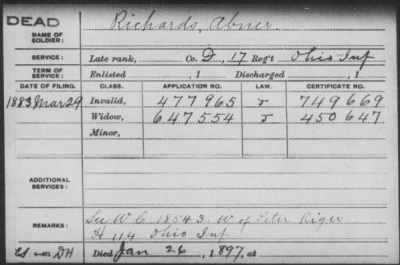 DEAD
NAME OF SOLDIER: Richards, Abner.
SERVICE: Late rank, Co. D, 17 Reg't Ohio Inf
TERM OF SERVICE: Enlisted , 1 Discharged , 1
DATE OF FILING. CLASS. APPLICATION NO. LAW. CERTIFICATE NO.
1883 Mar 29 Invalid, 477965 749669
Widow, 647554 450647
Minor,
ADDITIONAL SERVICES:
REMARKS: See W C 18543. W of Peter Riger
H 114 Ohio Inf
DH Died Jan 26, 1897, at